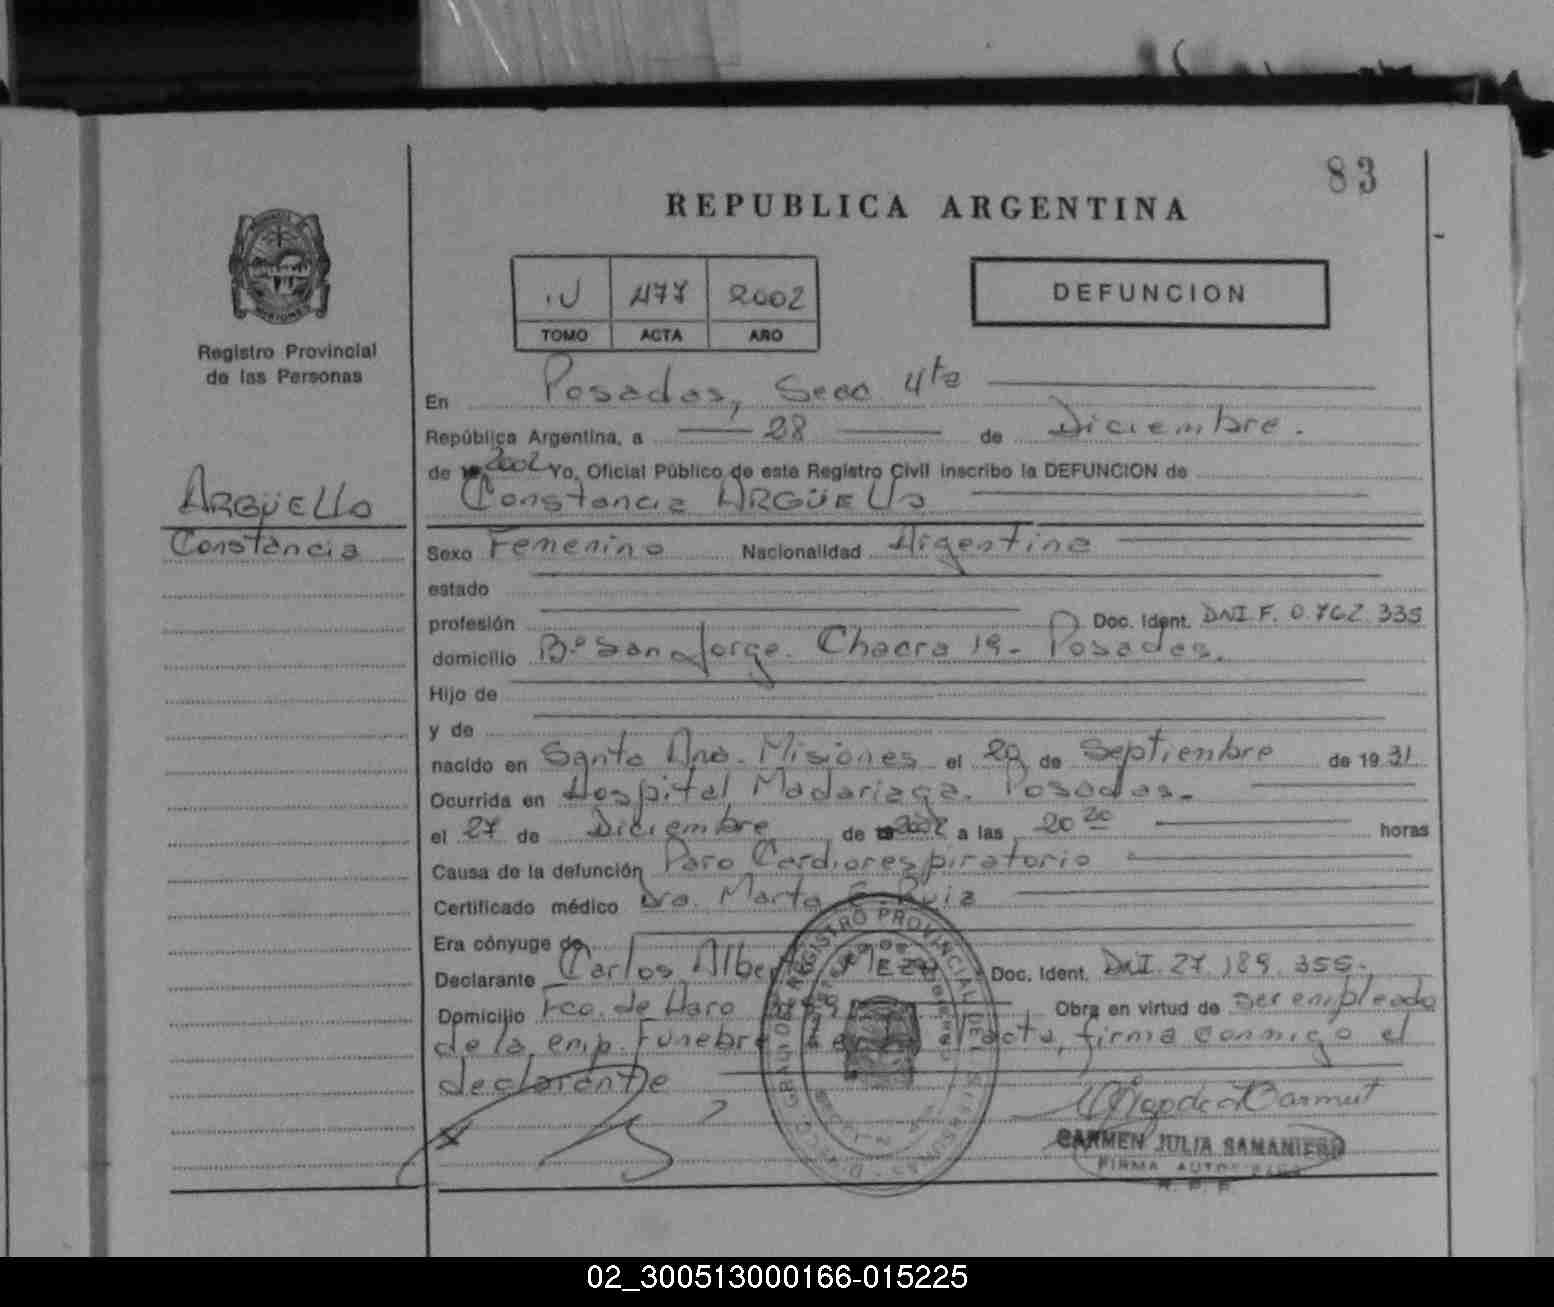 83
REPUBLICA ARGENTINA
IU 477 2002
TOMO ACTA AÑO
DEFUNCION
Registro Provincial
de las Personas
En Posadas, Secc 4ta
República Argentina, a 28 de Diciembre.
de 2002 Yo, Oficial Público de este Registro Civil inscribo la DEFUNCION de
Constancia ARGÜELLO
ARGÜELLO
Constancia
Sexo Femenino Nacionalidad Argentina
estado
profesión Doc. Ident. DNI. F. 0.762.335
domicilio Bº San Jorge. Chacra 19- Posadas.
Hijo de
y de
nacido en Santa Ana. Misiones el 29 de Septiembre de 1931
Ocurrida en Hospital Madariaga. Posadas.
el 27 de Diciembre de 2002 a las 20 20 horas
Causa de la defunción Paro Cardiorespiratorio
Certificado médico Dra. Marta E. Ruiz
Era cónyuge de
Declarante Carlos Doc. Ident. DNI. 27.189.355-
Domicilio Fco. de Haro Obra en virtud de ser empleado
de la emp. Funebre acta, firma conmigo el
declarante
REGISTRO PROVINCIAL DE LAS PERSONAS
CARMEN JULIA SAMANIEGO
FIRMA AUTORIZADA
R. P. P.
02_300513000166-015225